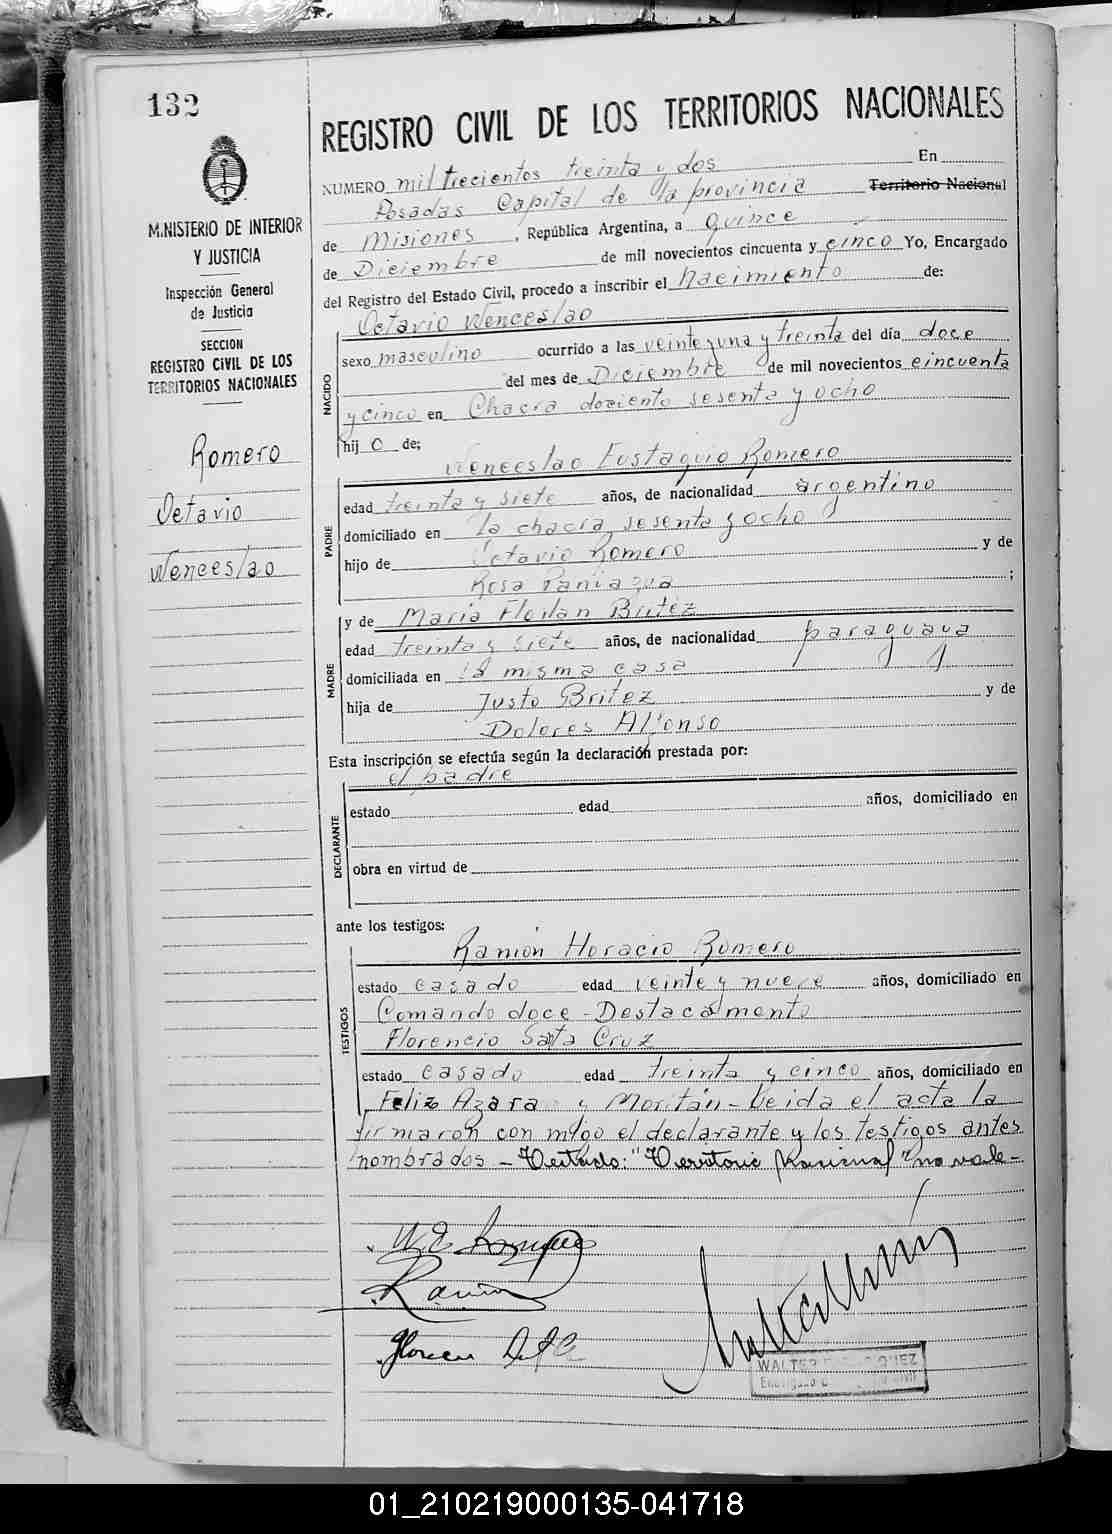 132
MINISTERIO DE INTERIOR
Y JUSTICIA
Inspección General
de Justicia
SECCION
REGISTRO CIVIL DE LOS
TERRITORIOS NACIONALES
Romero
Octavio
Wenceslao
REGISTRO CIVIL DE LOS TERRITORIOS NACIONALES
NUMERO mil trecientos treinta y dos En
Posadas Capital de la provincia Territorio Nacional
de Misiones, República Argentina, a quince
de Diciembre de mil novecientos cincuenta y cinco Yo, Encargado
del Registro del Estado Civil, procedo a inscribir el Nacimiento de:
Octavio Wenceslao
NACIDO
sexo masculino ocurrido a las veinte y una y treinta del día doce
del mes de Diciembre de mil novecientos cincuenta
y cinco en Chacra dociento sesenta y ocho
hijo de;
Wenceslao Eustaquio Romero
PADRE
edad treinta y siete años, de nacionalidad argentino
domiciliado en la chacra sesenta y ocho
hijo de Octavio Romero y de
Rosa Paniagua;
y de Maria Britez
MADRE
edad treinta y siete años, de nacionalidad paraguaya
domiciliada en la misma casa
hija de Justo Britez y de
Dolores Alfonso
Esta inscripción se efectúa según la declaración prestada por:
el padre
DECLARANTE
estado edad años, domiciliado en
obra en virtud de
ante los testigos:
Ramón Horacio Romero
TESTIGOS
estado casado edad veinte y nueve años, domiciliado en
Comando doce - Destacamento
Florencio Sata Cruz
estado casado edad treinta y cinco años, domiciliado en
Feliz Azara y Moritán - Leida el acta la
firmaron con migo el declarante y los testigos antes
nombrados - Testado: "Territorio Nacional" no vale -
WALTER
01_210219000135-041718